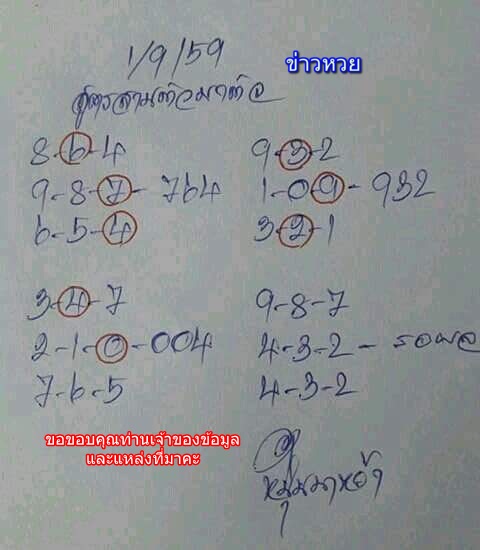 1/9/59
ข่าวหวย
สูตรสามตัวมาต่อ
8-6-4
9-8-7-764
6-5-4
9-3-2
1-0-9-932
3-2-1
3-4-7
2-1-0-004
7-6-5
9-8-7
4-3-2-รอผล
4-3-2
ขอขอบคุณท่านเจ้าของข้อมูล
และแหล่งที่มาคะ